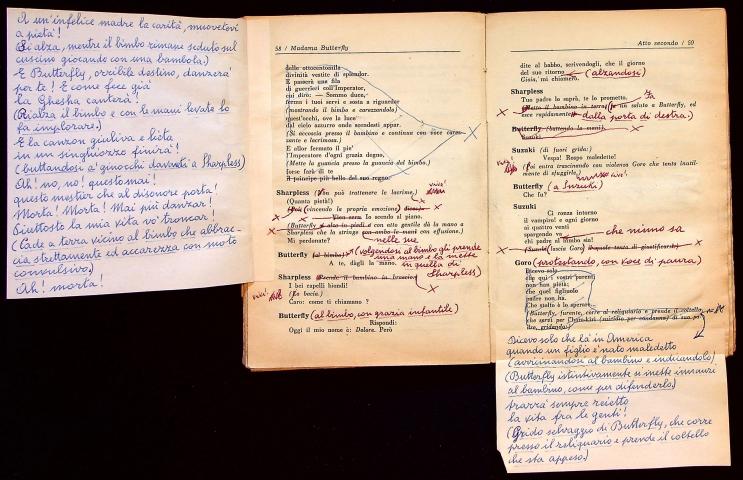 A un'infelice madre la carità, muovetevi
a pietà!
(Si alza, mentre il bimbo rimane seduto sul
cuscino giocando con una bambola.)
E Butterfly, orribile destino, danzerà
per te! E come fece già
la Ghesha canterà!
(Rialza il bimbo e con le mani levate lo
fa implorare.)
E la canzon giuliva e lieta
in un singhiozzo finirà!
(buttandosi a' ginocchi davanti a Sharpless)
Ah! no, no! questo mai!
questo mestier che al disonore porta!
Morta! Morta! Mai più danzar!
Piuttosto la mia vita vo' troncar!
(Cade a terra vicino al bimbo che abbrac-
cia strettamente ed accarezza con moto
convulsivo.)
Ah! morta!
58 / Madama Butterfly
delle ottocentomila
divinità vestite di splendor.
E passerà una fila
di guerrieri coll'Imperator,
cui dirò: — Sommo duce,
ferma i tuoi servi e sosta a riguardar
(mostrando il bimbo e carezzandolo)
quest'occhi, ove la luce
dal cielo azzurro onde scendesti appar.
(Si accoscia presso il bambino e continua con voce carez-
zante e lacrimosa.)
E allor fermato il piè
l'Imperatore d'ogni grazia degno,
(Mette la guancia presso la guancia del bimbo.)
forse farà di te
il principe più bello del suo regno.
Sharpless (Non può trattenere le lacrime.)
(Quanta pietà!)
(vincendo la propria emozione)
Vien sera. Io scendo al piano.
(Butterfly si alza in piedi e con atto gentile dà la mano a
Sharpless che la stringe con ambo le mani con effusione.)
nelle sue
Mi perdonate?
Butterfly (al bimbo) (volgendosi al bimbo gli prende
una mano e la mette
A te, dàgli la mano. in quella di
Sharpless)
Sharpless (Prende il bambino in braccio)
I bei capelli biondi!
(Lo bacia.)
Caro: come ti chiamano?
Butterfly (al bimbo, con grazia infantile)
Rispondi:
Oggi il mio nome è: Dolore. Però
Atto secondo / 59
dite al babbo, scrivendogli, che il giorno
del suo ritorno (alzandosi)
Gioia, mi chiamerò.
Sharpless
Tuo padre lo saprà, te lo prometto.
(Mette il bambino in terra, fa un saluto a Butterfly, ed
esce rapidamente dalla porta di destra.)
Butterfly (battendo le mani)
Suzuki.
Suzuki (di fuori grida:)
Vespa! Rospo maledetto!
(Poi entra trascinando con violenza Goro che tenta inutilmente
di sfuggirle.)
Butterfly (a Suzuki)
Che fu?
Suzuki
Ci ronza intorno
il vampiro! e ogni giorno
ai quattro venti
spargendo va che niuno sa
chi padre al bimbo sia!
Goro (protestando, con voce di paura)
Dicevo solo
che qui i vostri parenti
non han pietà;
che quel figliuolo
padre non ha.
Che sfuggito è lo sguardo
Dicevo solo che là in America
quando un figlio è nato maledetto
(avvicinandosi al bambino e indicandolo)
(Butterfly istintivamente si mette innanzi
al bambino, come per difenderlo.)
trarrà sempre reietto
la vita fra le genti!
(Grido selvaggio di Butterfly, che corre
presso il reliquiario e prende il coltello
che sta appeso.)